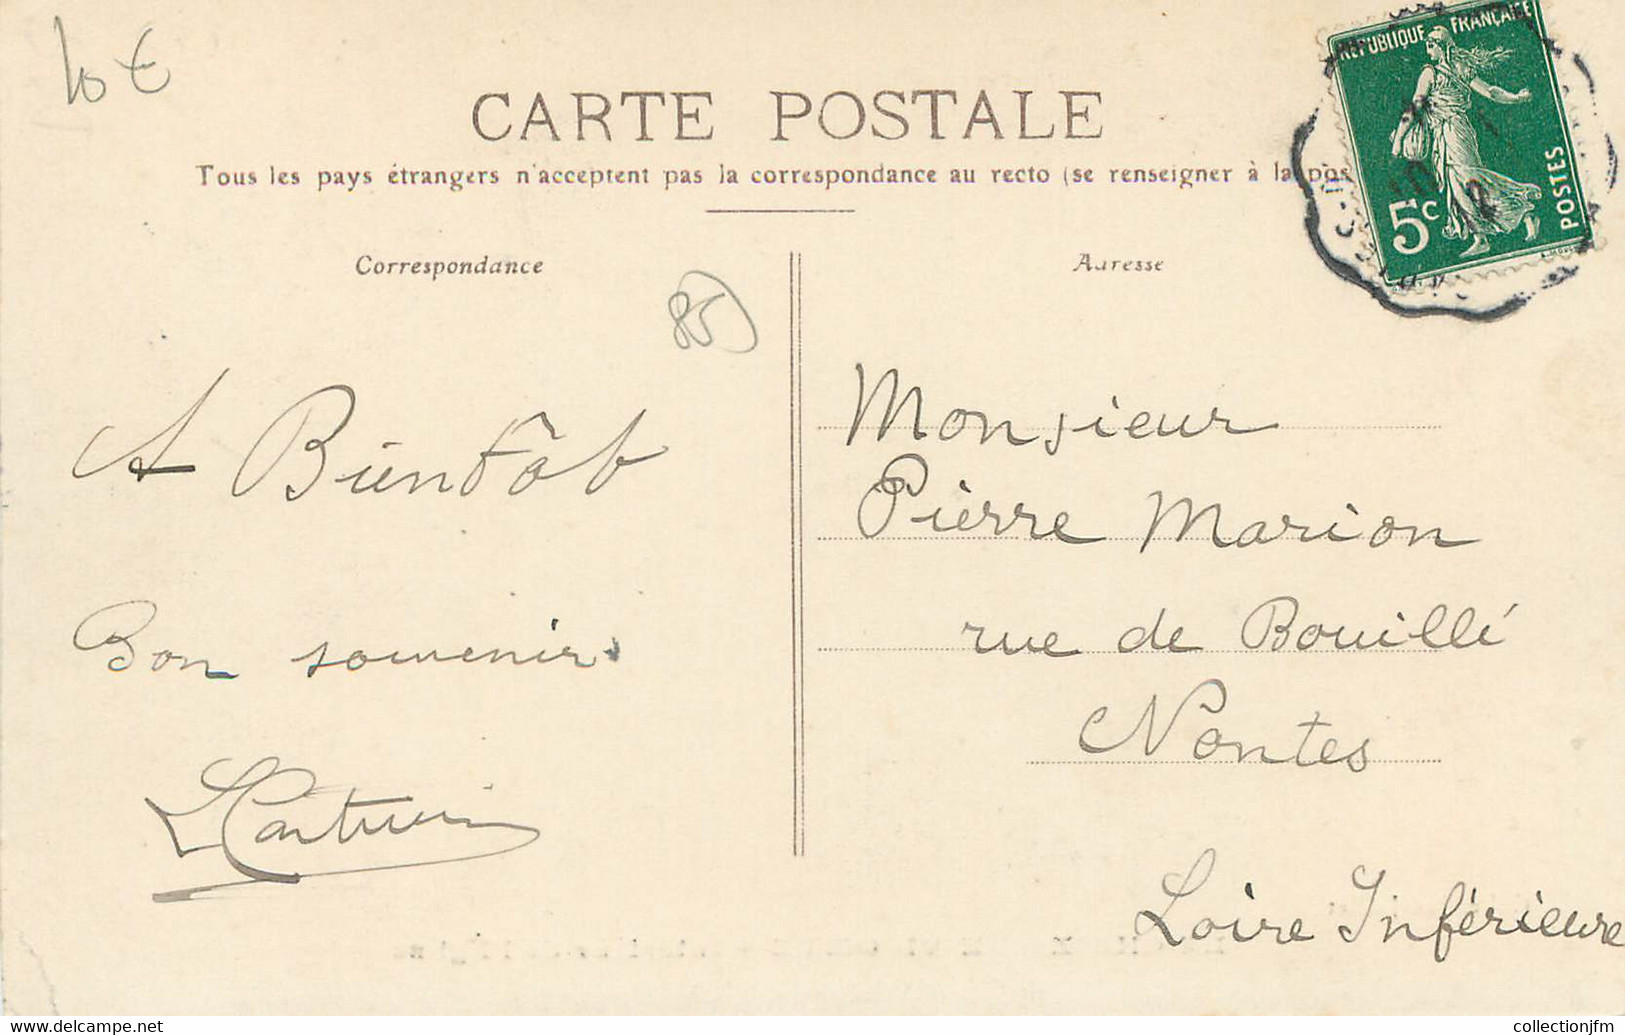 10 €
CARTE POSTALE
Tous les pays étrangers n'acceptent pas la correspondance au recto (se renseigner à la pos
RÉPUBLIQUE FRANÇAISE
5c
POSTES
12
Correspondance
Adresse
85
A Bientôt
Bon souvenir
Monsieur
Pierre Marion
rue de Bouillé
Nantes
Loire Inférieure
www.delcampe.net
collectionjfm